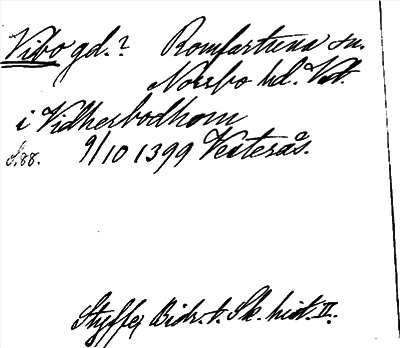 Vibo gd.? Romfartuna sn.
Norrbo hd. Vstm.
i Vidherbodhom
S. 88. 9/10 1399 Vesterås.
Styffe, Bidr. t. Sk. hist. II.